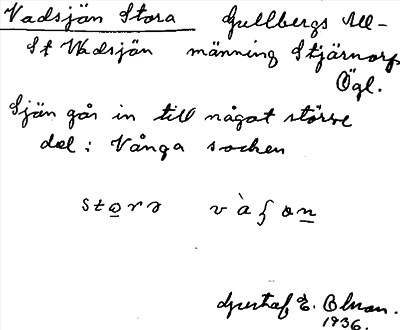 Vadsjön Stora Gullbergs All-
St Vadsjön männing Stjärnorp
Ögl.
Sjön går in till något större
del i Vånga socken
stora
Gustaf E. Olsson.
1936.